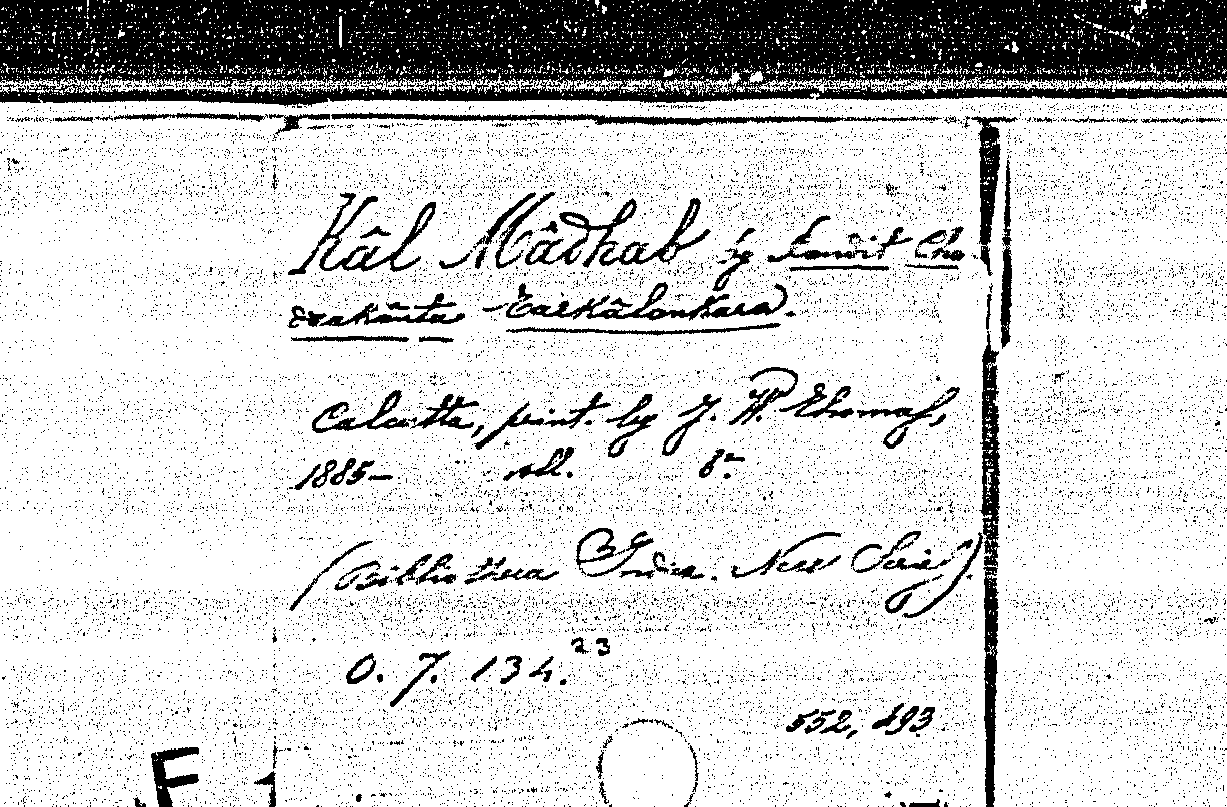 Kâl Mâdhab by Pandit Cha
drakânta Tarkâlankara.
Calcutta, print. by J. W. Thomas,
1885— vol. 8º
(Bibliotheca Indica. New Series)
O. 7. 134.²³
552, 493
F